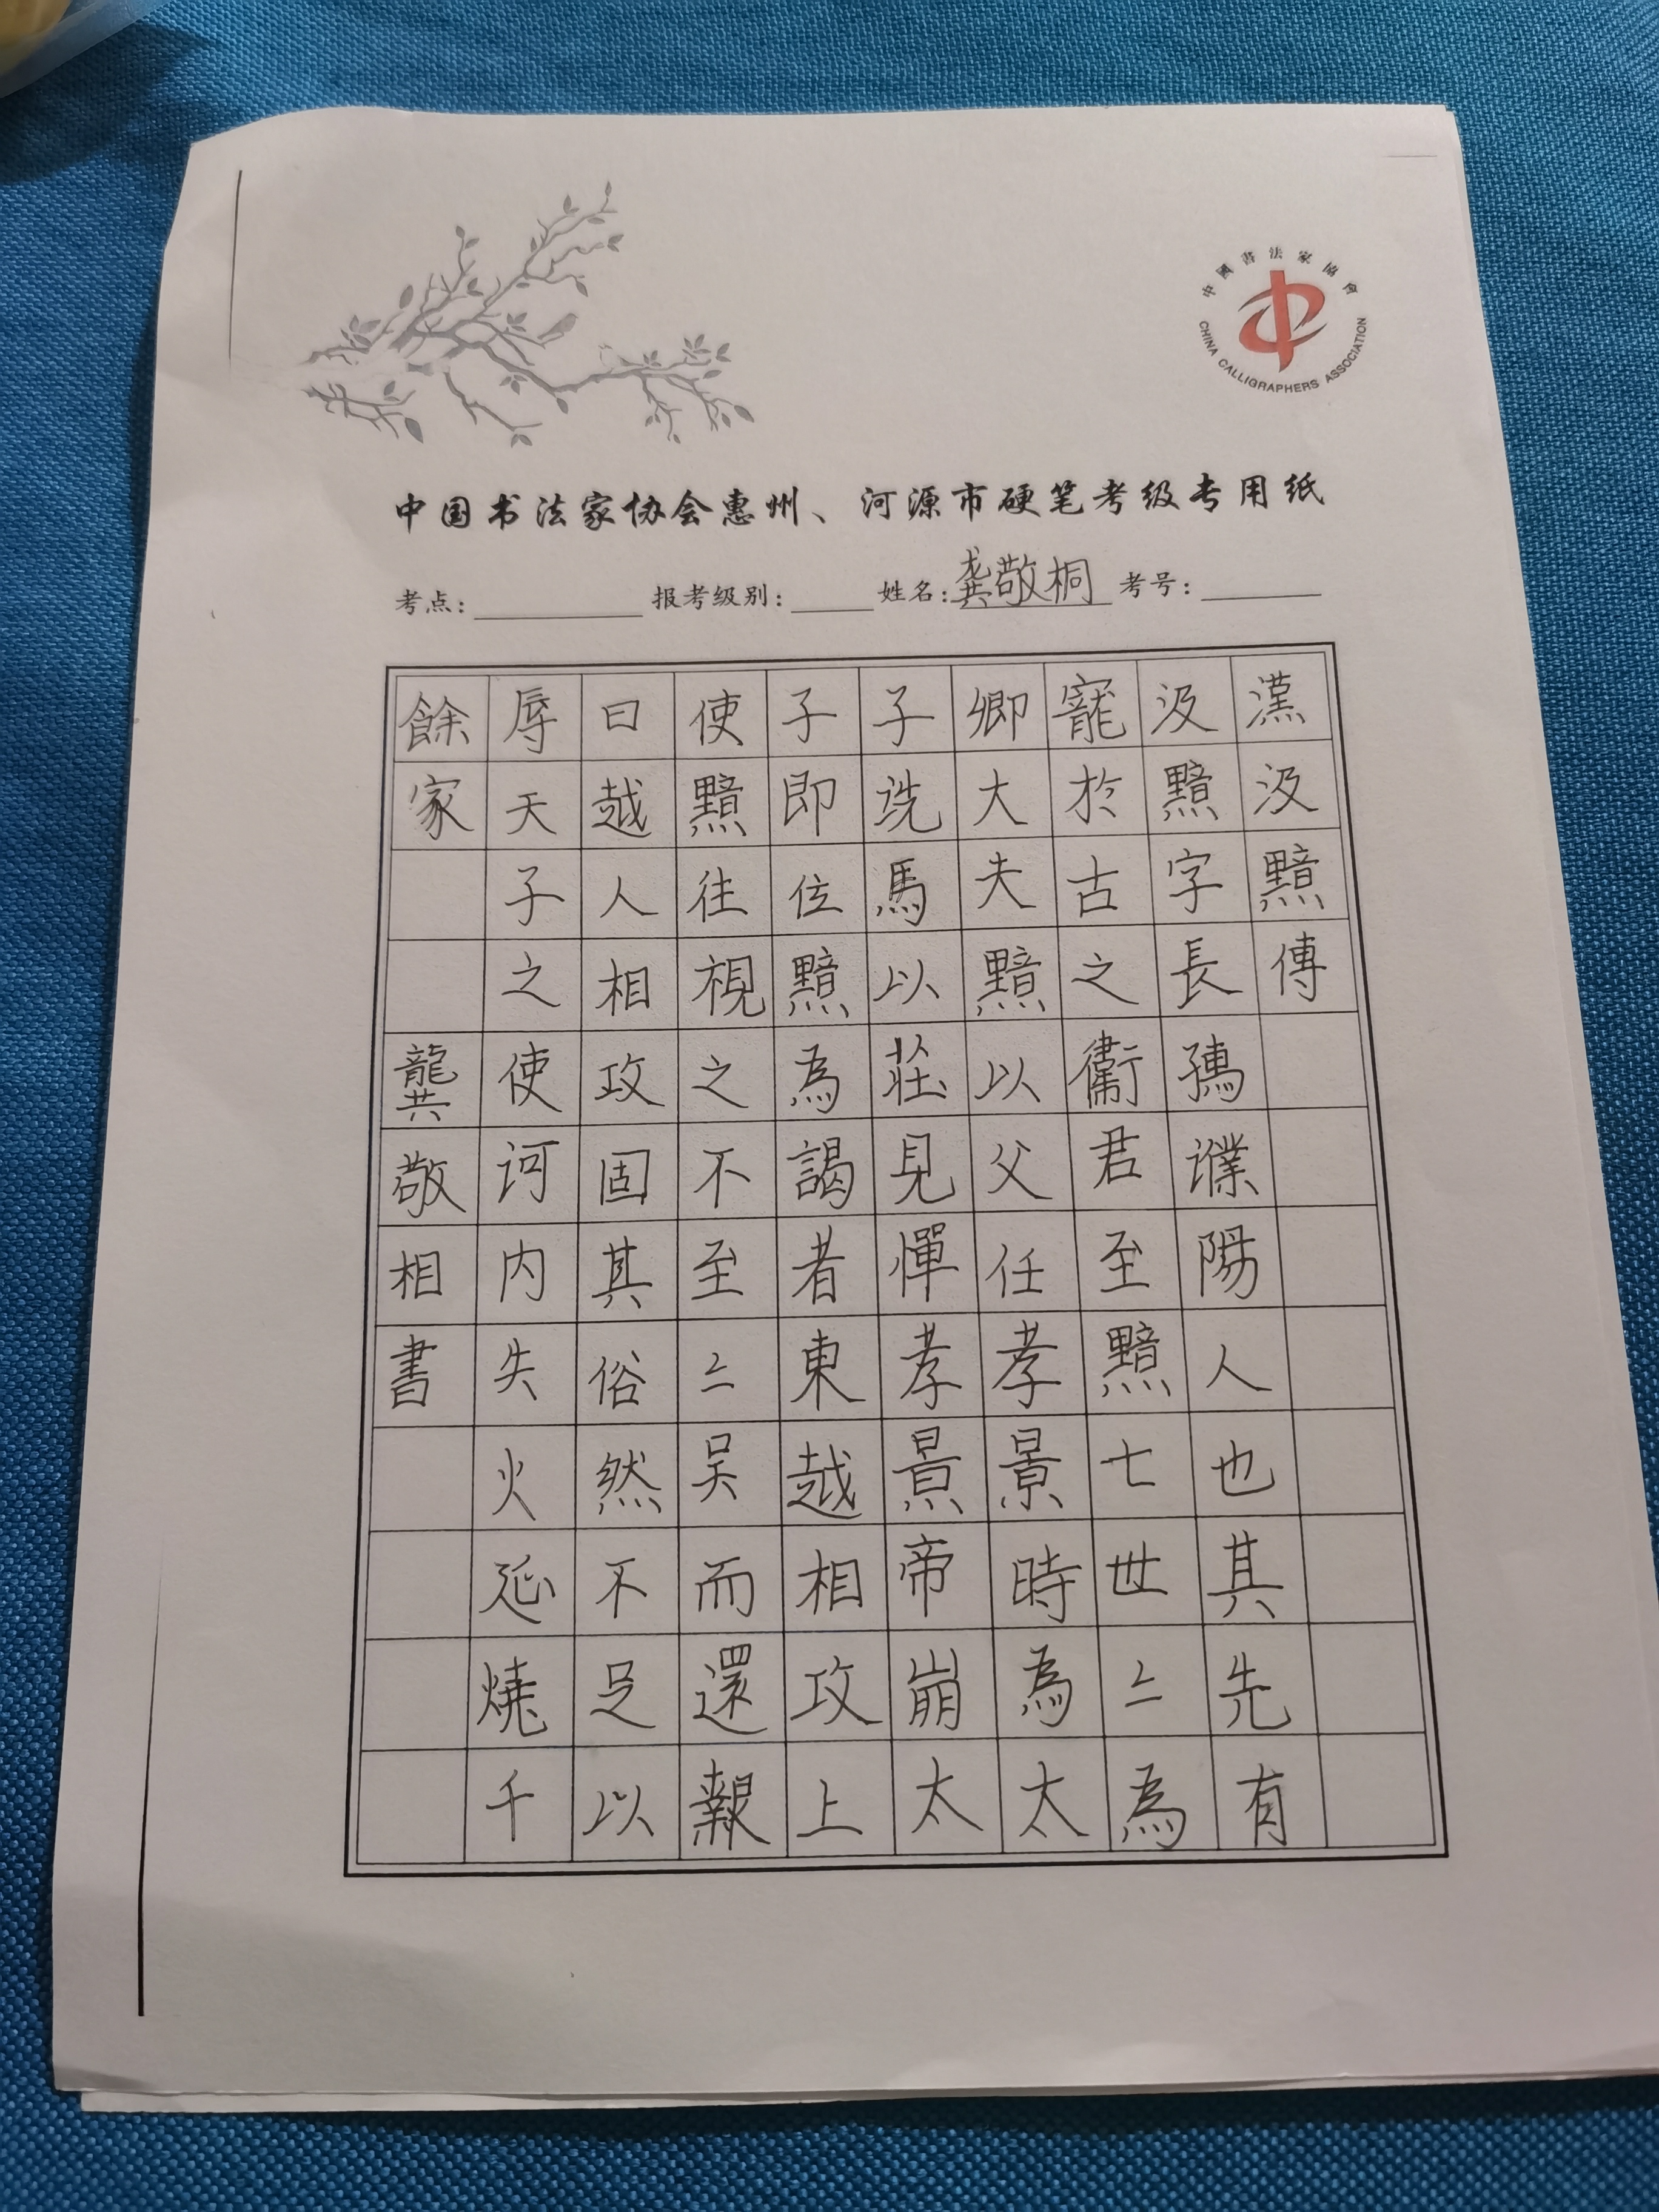 中國書法家協會
CHINA CALLIGRAPHERS ASSOCIATION
中国书法家协会惠州、河源市硬笔考级专用纸
考点: 报考级别: 姓名:龚敬桐 考号:
漢汲黯傳
汲黯字長孺濮陽人也其先有
寵於古之衞君至黯七世二為
卿大夫黯以父任孝景時為太
子洗馬以莊見憚孝景帝崩太
子即位黯為謁者東越相攻上
使黯往視之不至二吴而還報
曰越人相攻固其俗然不足以
辱天子之使河内失火延燒千
餘家
龔敬相書